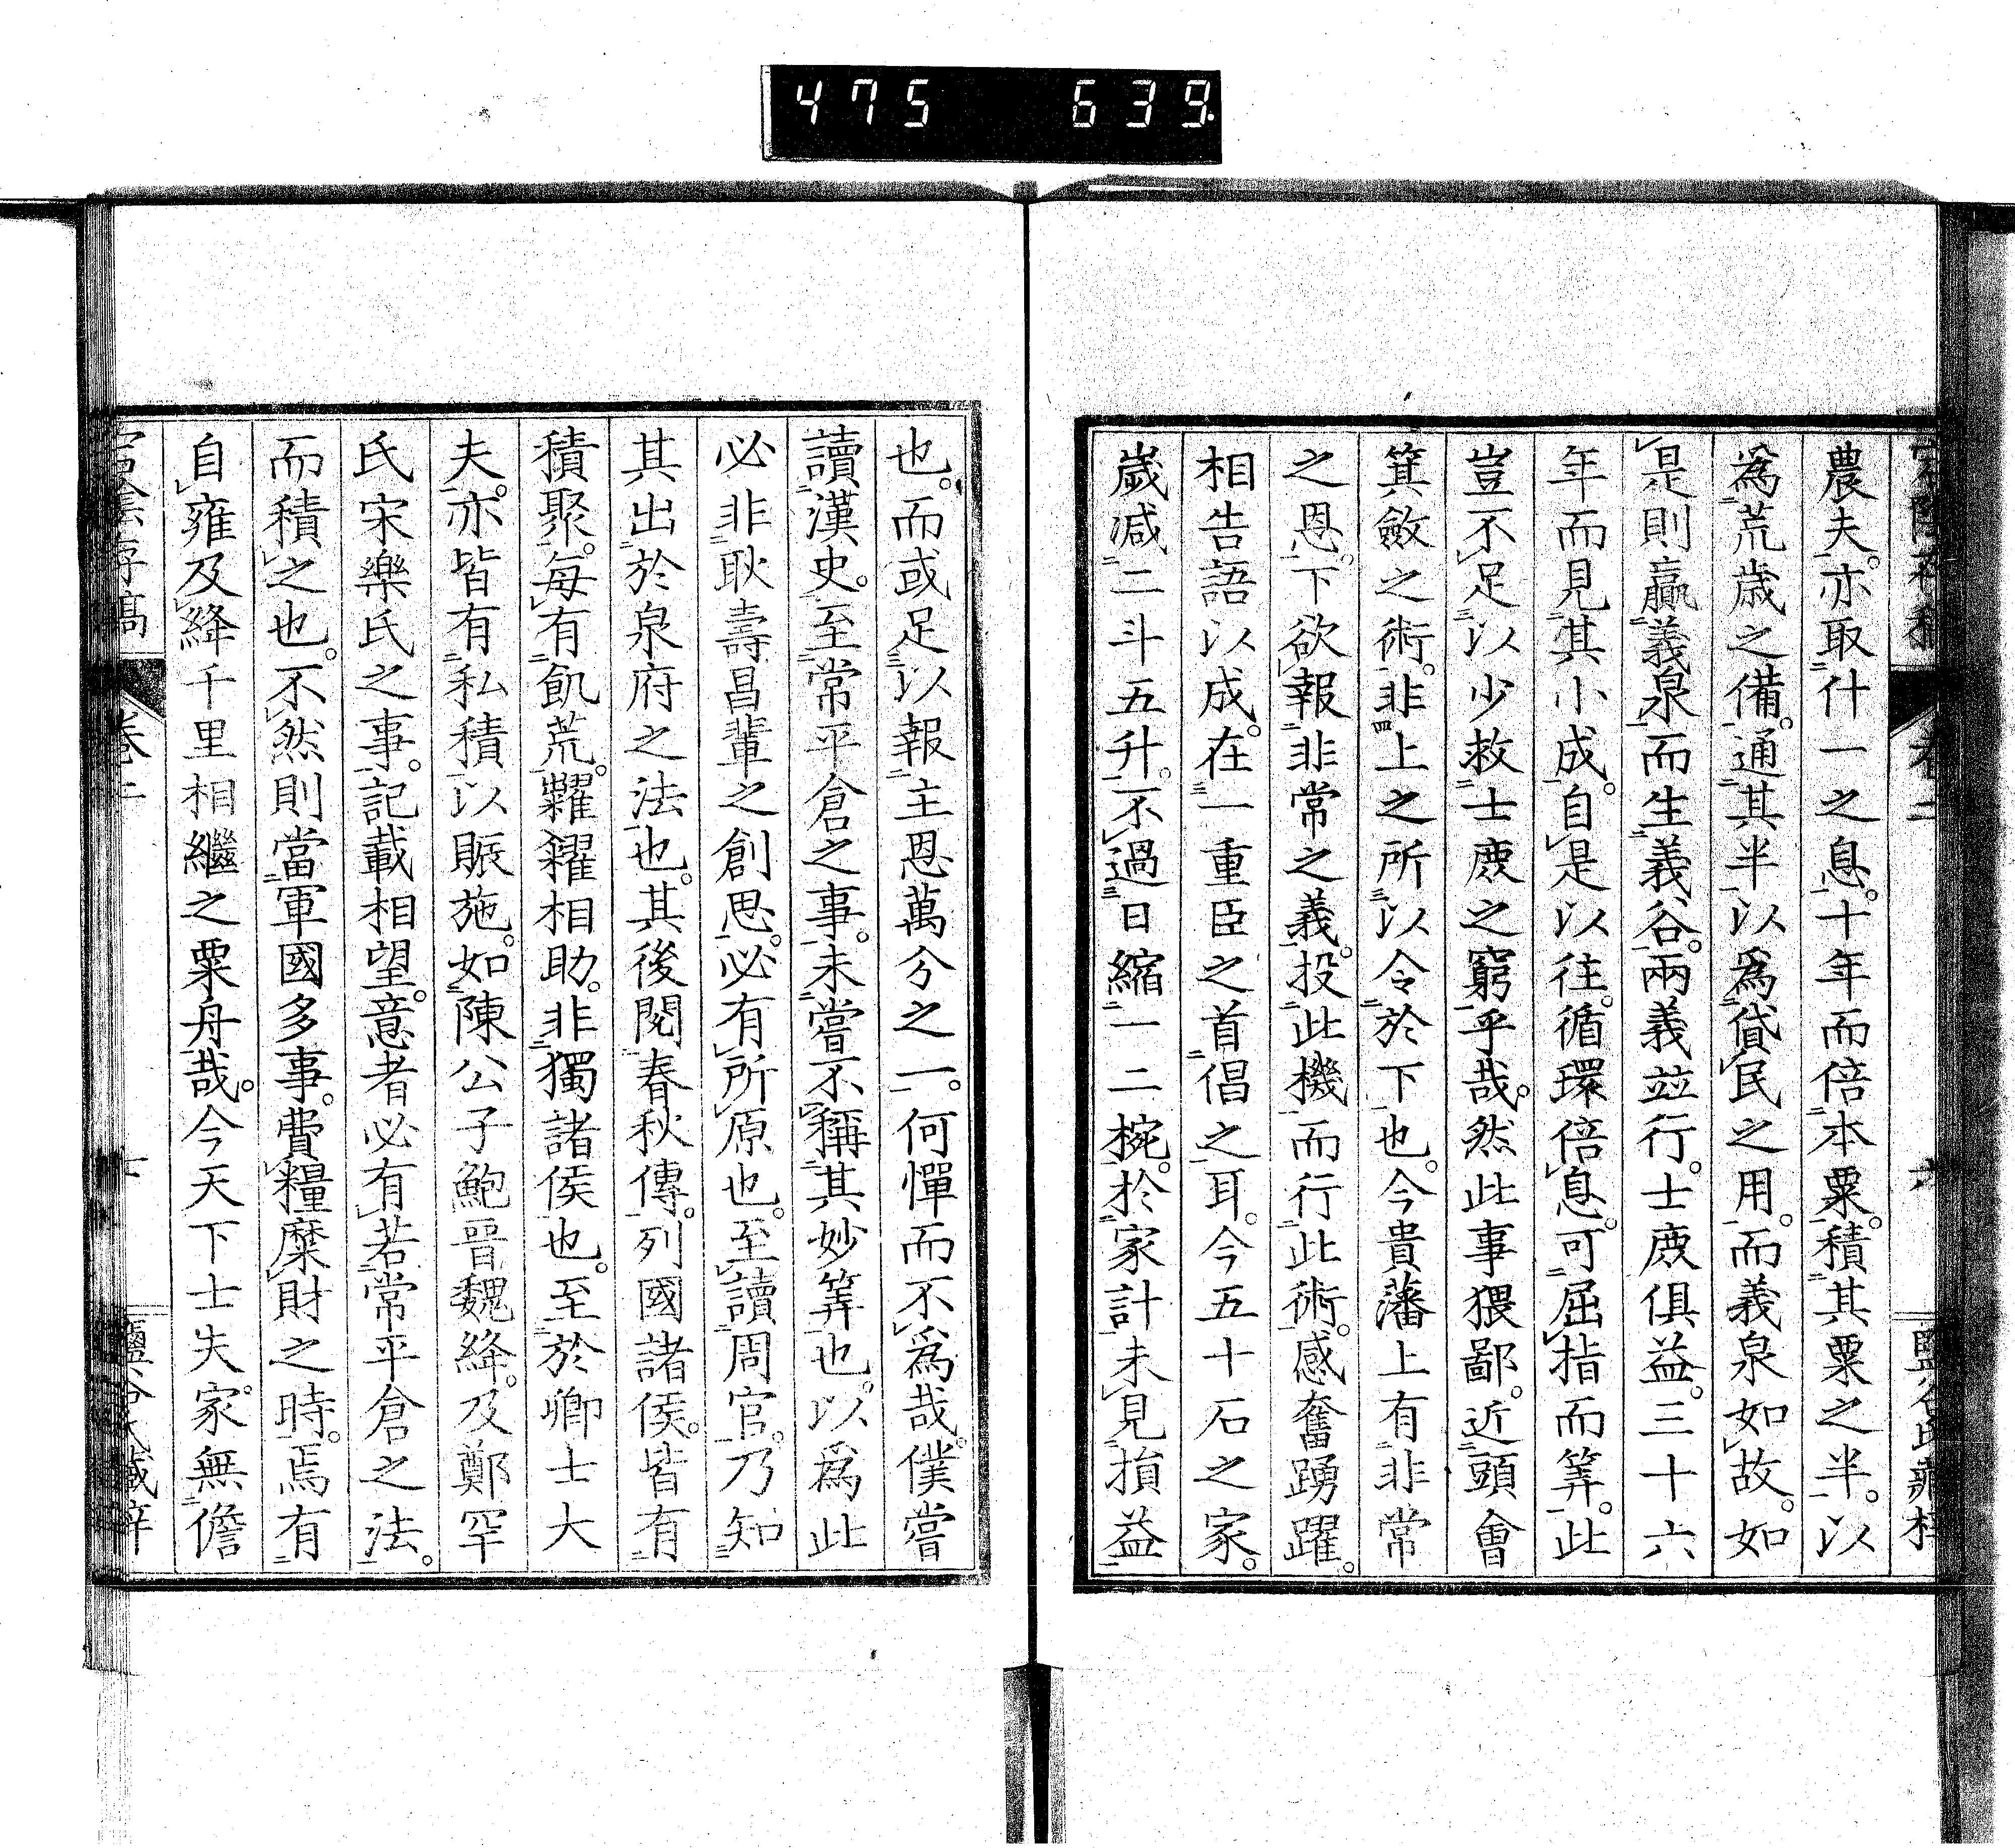 475 639.
農夫。亦取什一之息。十年而倍本粟。積其粟之半。以
爲荒歲之備。通其半以爲貸民之用。而義泉如故。如
是則贏義泉而生義谷。兩義竝行。士庻俱益。三十六
年而見其小成。自是以往。循環倍息。可屈指而筭。此
豈不足以少救士庻之窮乎哉。然此事猥鄙。近頭會
箕斂之術。非上之所以令於下也。今貴藩上有非常
之恩。下欲報非常之義。投此機而行此術。感奮踴躍。
相告語以成。在一重臣之首倡之耳。今五十石之家。
歲減二斗五升。不過日縮一二椀。於家計未見損益
也。而或足以報主恩萬分之一。何憚而不爲哉。僕嘗
讀漢史。至常平倉之事。未嘗不稱其妙筭也。以爲此
必非耿壽昌輩之創思。必有所原也。至讀周官。乃知
其出於泉府之法也。其後閱春秋傳。列國諸侯。皆有
積聚。每有飢荒。糶糴相助。非獨諸侯也。至於卿士大
夫。亦皆有私積以賑施。如陳公子鮑晉魏絳。及鄭罕
氏宋樂氏之事。記載相望。意者必有若常平倉之法。
而積之也。不然則當軍國多事。費糧糜財之時。焉有
自雍及絳千里相繼之粟舟哉。今天下士夫。家無儋
卷二